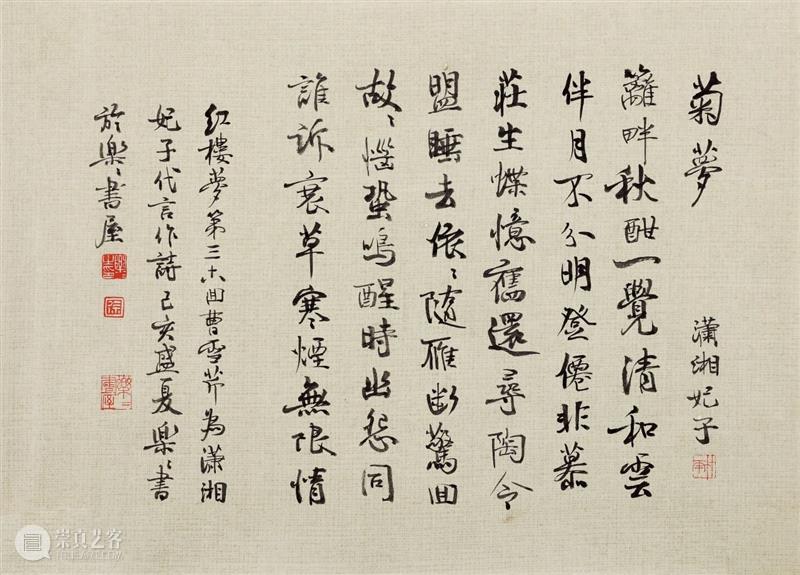 菊夢
瀟湘妃子
籬畔秋酣一覺清和雲
伴月不分明登僊非慕
莊生蝶憶舊還尋陶令
盟睡去依〻隨雁斷驚回
故〻惱蛩鳴醒時幽怨同
誰訴衰草寒煙無限情
红樓夢第三十八回曹雪芹為瀟湘
妃子代言作詩己亥盛夏樂〻書
於樂〻書屋
崇真艺客